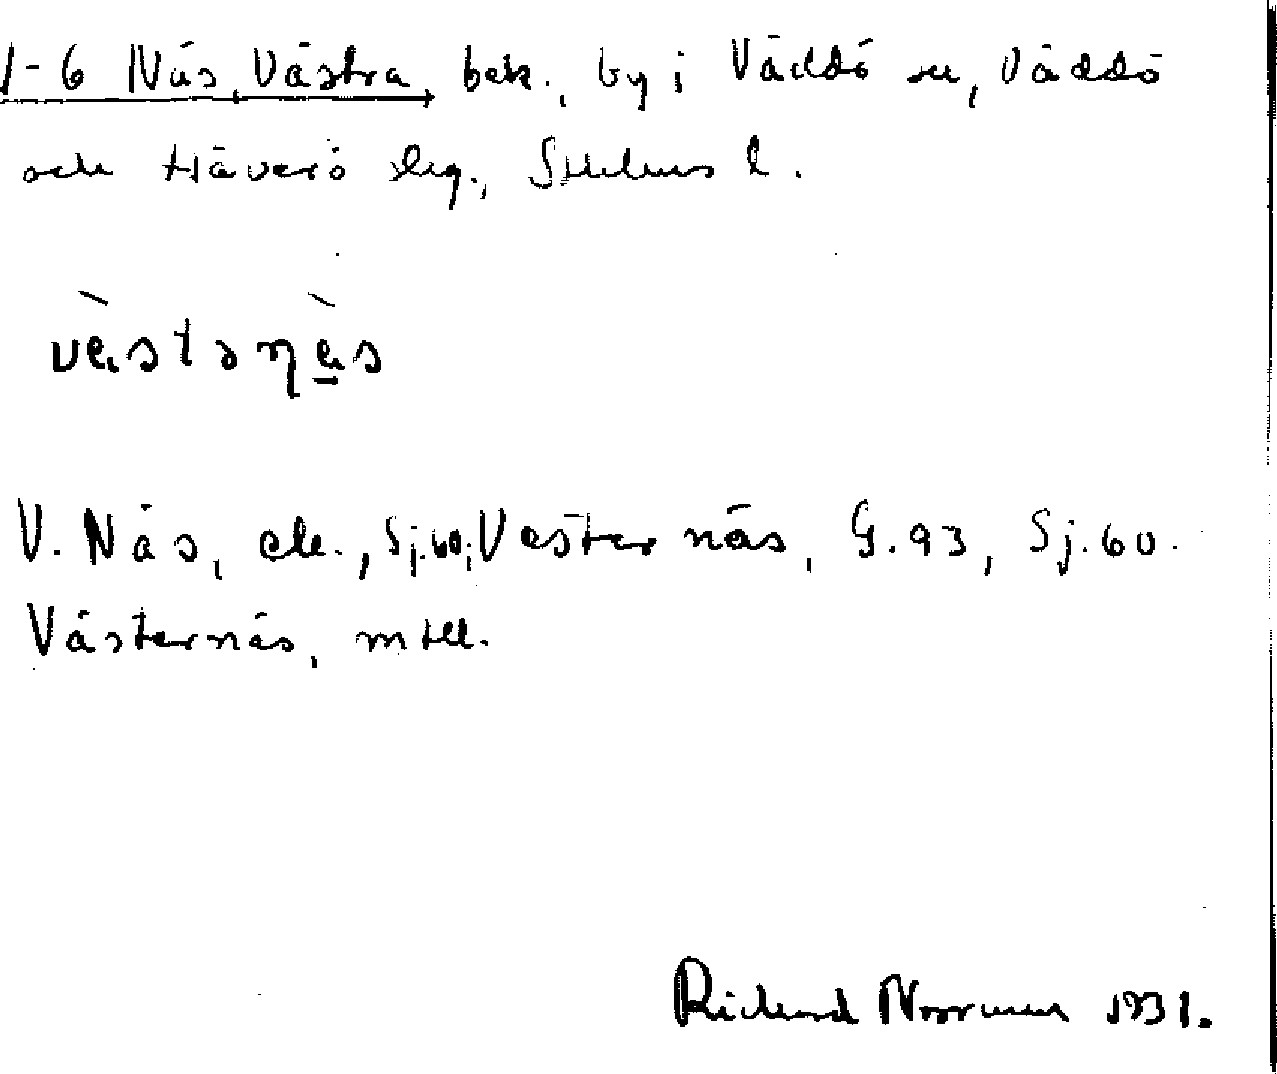 1-6 Näs, Västra, bek., by i Väddö sn, Väddö
och Häverö slg., Sthlms l.
vä̀stənä̀s
V. Näs, ek., Sj.60; Vesternäs, G.93, Sj.60.
Västernäs, mtll.
Richard Norrman 1931.